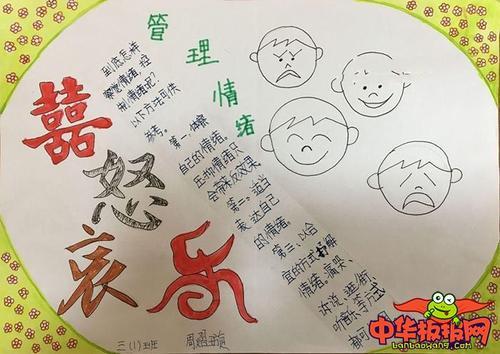 管理情绪
到底怎样
察觉情绪、控
制情绪呢？
以下方法可供
参考。
第一、体察
自己的情绪。
压抑情绪只
会带来反效果
第二、适当
表达自己
的情绪。
第三、以合
宜的方式纾解
情绪。痛哭、
诉说、逛街、
听音乐等方式
都可
囍
怒
哀
乐
三(1)班
中华板报网
banbaowang.com